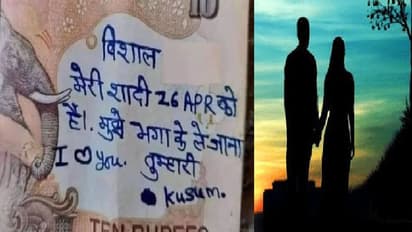 10
विशाल
मेरी शादी 26 APR को
है। मुझे भगा के ले जाना
I ♡ you. तुम्हारी
kusum.
TEN RUPEES